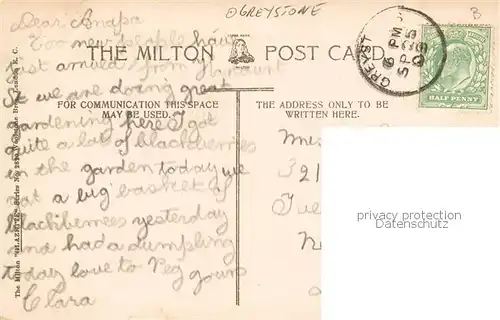 OGREYSTONE
B
THE MILTON POST CARD
GREYST
6 PM
SP 23
09
HALF PENNY
FOR COMMUNICATION THIS SPACE
MAY BE USED.
THE ADDRESS ONLY TO BE
WRITTEN HERE.
Dear
Too new people have
just arrived from
we are doing great
gardening here I got
quite a lot of blackberries
in the garden today we
got a big basket of
blackberries yesterday
and had a dumpling
today love to Peg yours
Clara
321
privacy protection
Datenschutz
The Milton "GLAZETTE" Series No.
London E.C.